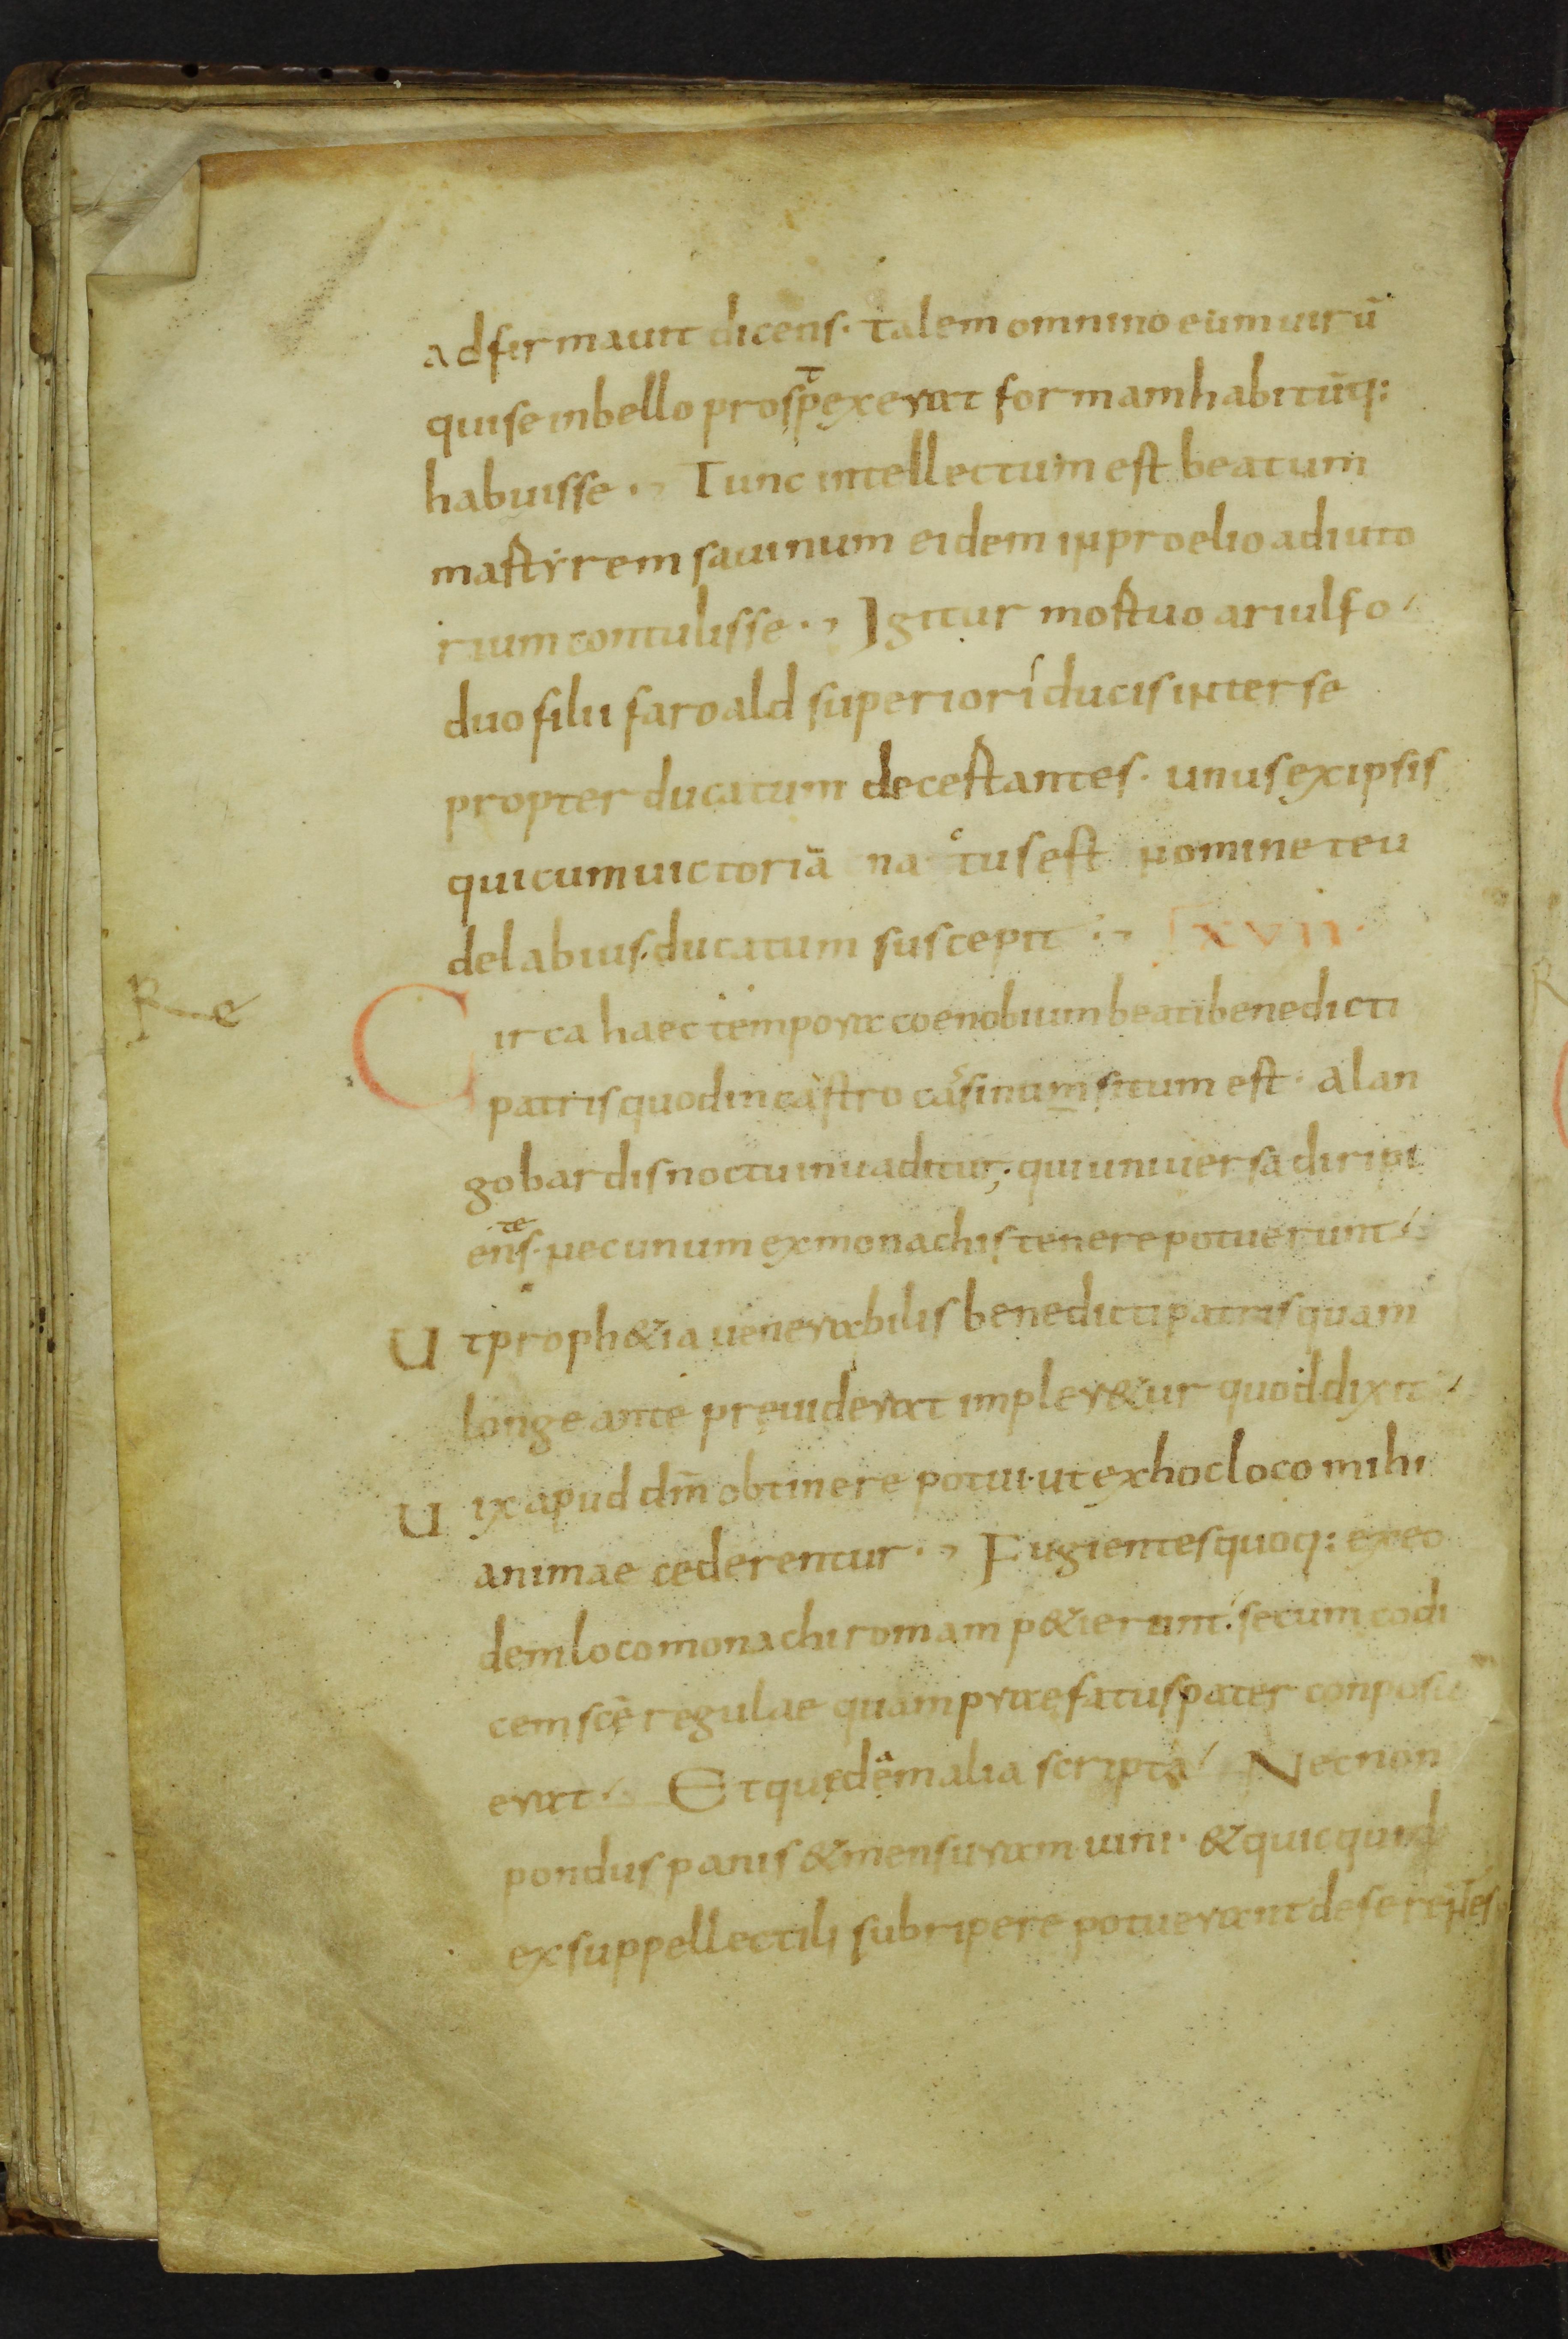 adfirmauit dicens· talem omnino eum uirū
qui se in bello prosp̄texerat formam habitūq:
habuisse · Tunc intellectum est beatum
martyrem sauinum eidem in proelio adiuto
rium contulisse · Igitur mortuo ariulfo
duo filii faroald superiori ducis inter se
propter ducatum decertantes · unus ex ipsis
qui cum uictoriā natus est nomine teu
delabius · ducatum suscepit · XVII·
Circa haec tempora coenobium beati benedicti
patris quod in castro casinum situm est · a lan
gobardis noctu inuaditur; qui uniuersa diripi
entes · nec unum ex monachis tenere potuerunt
Ut proph&ia uenerabilis benedicti patris quam
longe ante preuiderat impler&ur quod dixit
Uix apud dm̄ obtinere potui· ut ex hoc loco mihi
animae cederentur · Fugientes quoq: ex eo
dem loco monachi romam p&ierunt · secum codi
cem scē regulae quam praefatus pater conposu
erat · Et quedam alia scripta Necnon
pondus panis & mensuram uini · & quicquid
ex suppellectili subripere potuerant deferentes